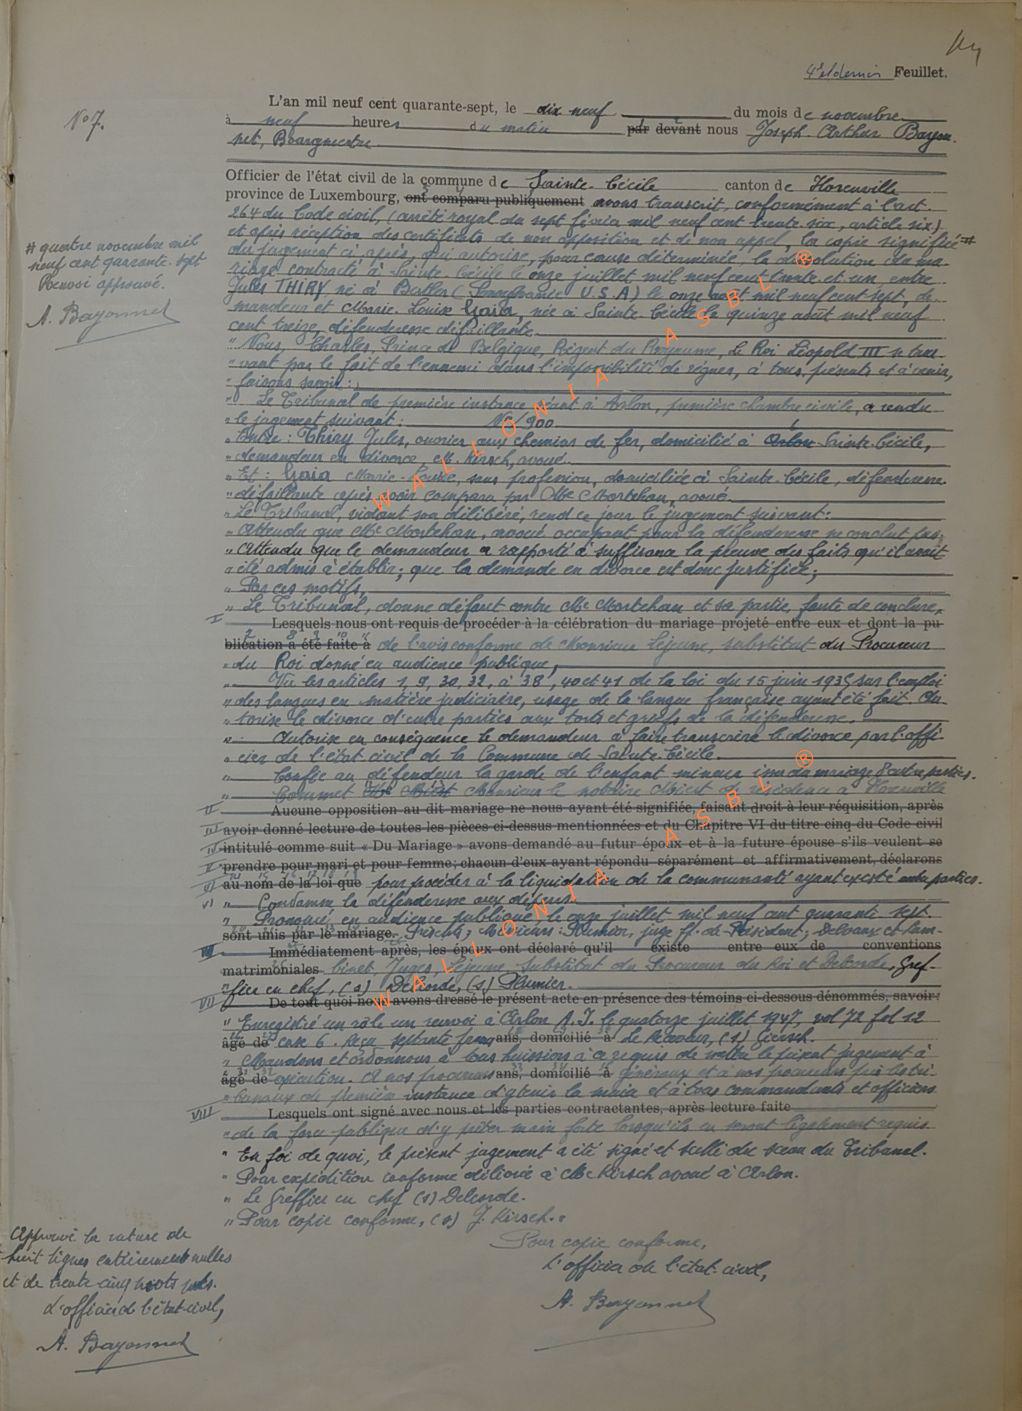 4e et dernier Feuillet.
No 7.
L'an mil neuf cent quarante-sept, le dix neuf du mois de novembre
à neuf heures du matin par devant nous Joseph Arthur Bayon-
net, Bourgmestre
Officier de l'état civil de la commune de Sainte-Cécile canton de Florenville
province de Luxembourg, ont comparu publiquement avons transcrit, conformément à l'art.
264 du Code civil, (arrêté royal du sept février mil neuf cent trente six, article six)
et après réception des certificats de non opposition et de non appel, la copie signifiée #
# quatre novembre mil
neuf cent quarante-sept
Renvoi approuvé.
A. Bayonnet
du jugement ci-après, qui autorise, pour cause déterminée, la dissolution du ma-
riage contracté à Sainte-Cécile le onze juillet mil neuf cent trente et un, entre
Jules THIRY né à Butler (Pennsylvanie U.S.A) le onze août mil neuf cent sept, de-
mandeur et Marie-Louise Gaia, née à Sainte-Cécile le quinze août mil neuf
cent treize, défenderesse défaillante.
"Nous, Charles, Prince de Belgique, Régent du Royaume, le Roi Léopold III se trou-
"vant par le fait de l'ennemi dans l'impossibilité de régner, à tous, présents et à venir,
"faisons savoir:
"Le Tribunal de première instance séant à Arlon, première chambre civile, a rendu
"le jugement suivant: No 900
"Entre: Thiry Jules, ouvrier aux chemins de fer, domicilié à Arlon Sainte-Cécile,
"demandeur en divorce, M. Kirsch, avoué.
"Et: Gaia Marie-Louise, sans profession, domiciliée à Sainte-Cécile, défenderesse
"défaillante après avoir comparu par Me Mortehan, avoué.
"Le Tribunal, vidant son délibéré, rend ce jour le jugement suivant:
"Attendu que Me Mortehan, avoué occupant pour la défenderesse ne conclut pas;
"Attendu que le demandeur a rapporté à suffisance la preuve des faits qu'il avait
"été admis à établir; que la demande en divorce est donc justifiée;
"Par ces motifs,
"Le Tribunal, donne défaut contre Me Mortehan et sa partie, faute de conclure,
I Lesquels nous ont requis de procéder à la célébration du mariage projeté entre eux et dont la pu-
blication a été faite à de l'avis conforme de Monsieur Lejeune, substitut du Procureur
"du Roi donné en audience publique,
"Vu les articles 1, 9, 30, 32, à 38, 40 et 41 de la loi du 15 juin 1935 sur l'emploi
"des langues en matière judiciaire, usage de la langue française ayant été fait. Au-
"torise le divorce d'entre parties aux torts et griefs de la défenderesse.
"Autorise en conséquence le demandeur à faire transcrire le divorce par l'offi-
"cier de l'état civil de la Commune de Sainte-Cécile.
"Confie au défendeur la garde de l'enfant mineur issu du mariage d'entre parties.
"Commet Monsieur le notaire de résidence à Florenville
II Aucune opposition au dit mariage ne nous ayant été signifiée, faisant droit à leur réquisition, après
III avoir donné lecture de toutes les pièces ci-dessus mentionnées et du Chapitre VI du titre cinq du Code civil
IV intitulé comme suit « Du Mariage » avons demandé au futur époux et à la future épouse s'ils veulent se
V prendre pour mari et pour femme; chacun d'eux ayant répondu séparément et affirmativement, déclarons
au nom de la loi que pour procéder à la liquidation de la communauté ayant existé entre parties.
VI "Condamne la défenderesse aux dépens.
"Prononcé en audience publique, le onze juillet mil neuf cent quarante sept.
sont unis par le mariage. Présents; Messieurs: Plumier, juge ff. de Président; Delvaux et Lam-
Immédiatement après, les époux ont déclaré qu'il existe entre eux de conventions
matrimoniales binet, Juges, Lejeune, Substitut du Procureur du Roi et Delrorde, Gref-
"fier en chef, (s) Delrorde, (s) Plumier.
VII De tout quoi nous avons dressé le présent acte en présence des témoins ci-dessous dénommés, savoir:
"Enregistré un rôle un renvoi à Arlon A.J. le quatorze juillet 1947, vol 72 fol 12
âgé de case 6. Reçu septante francs ans, domicilié à Le Receveur, (s)
"Mandons et ordonnons à tous huissiers à ce requis de mettre le présent jugement à
âgé de exécution. A nos procureurs ans, domicilié à généraux et à nos procureurs près les tri-
"bunaux de première instance d'y tenir la main et à tous commandants et officiers
VIII Lesquels ont signé avec nous et les parties contractantes, après lecture faite
"de la force publique d'y prêter main forte lorsqu'ils en seront légalement requis.
"En foi de quoi, le présent jugement a été signé et scellé du sceau du Tribunal.
"Pour expédition conforme délivrée à Me Kirsch avoué à Arlon.
"Le Greffier en chef (s) Delrorde.
"Pour copie conforme, (s) J. Kirsch."
Pour copie conforme,
L'officier de l'état-civil,
A. Bayonnet
Approuvé la rature de
huit lignes entièrement nulles
et de trente cinq mots nuls.
L'officier de l'état-civil,
A. Bayonnet
WALLONIA ASBL ®
WALLONIA ASBL ®